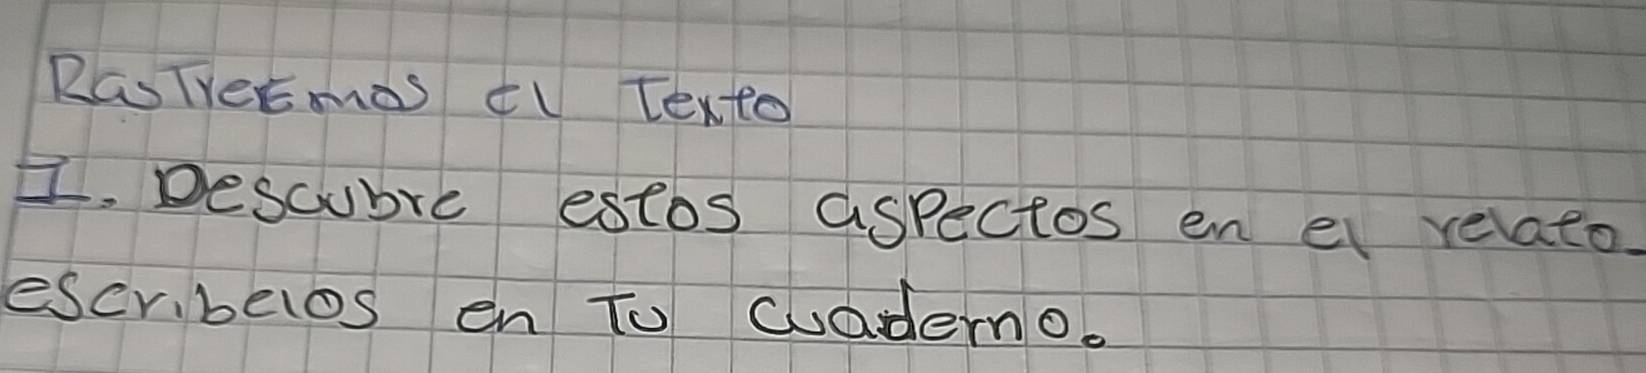 Rastreemos el Texto
I. Descubre estos aspectos en el relato.
escribelos en Tu cuaderno.